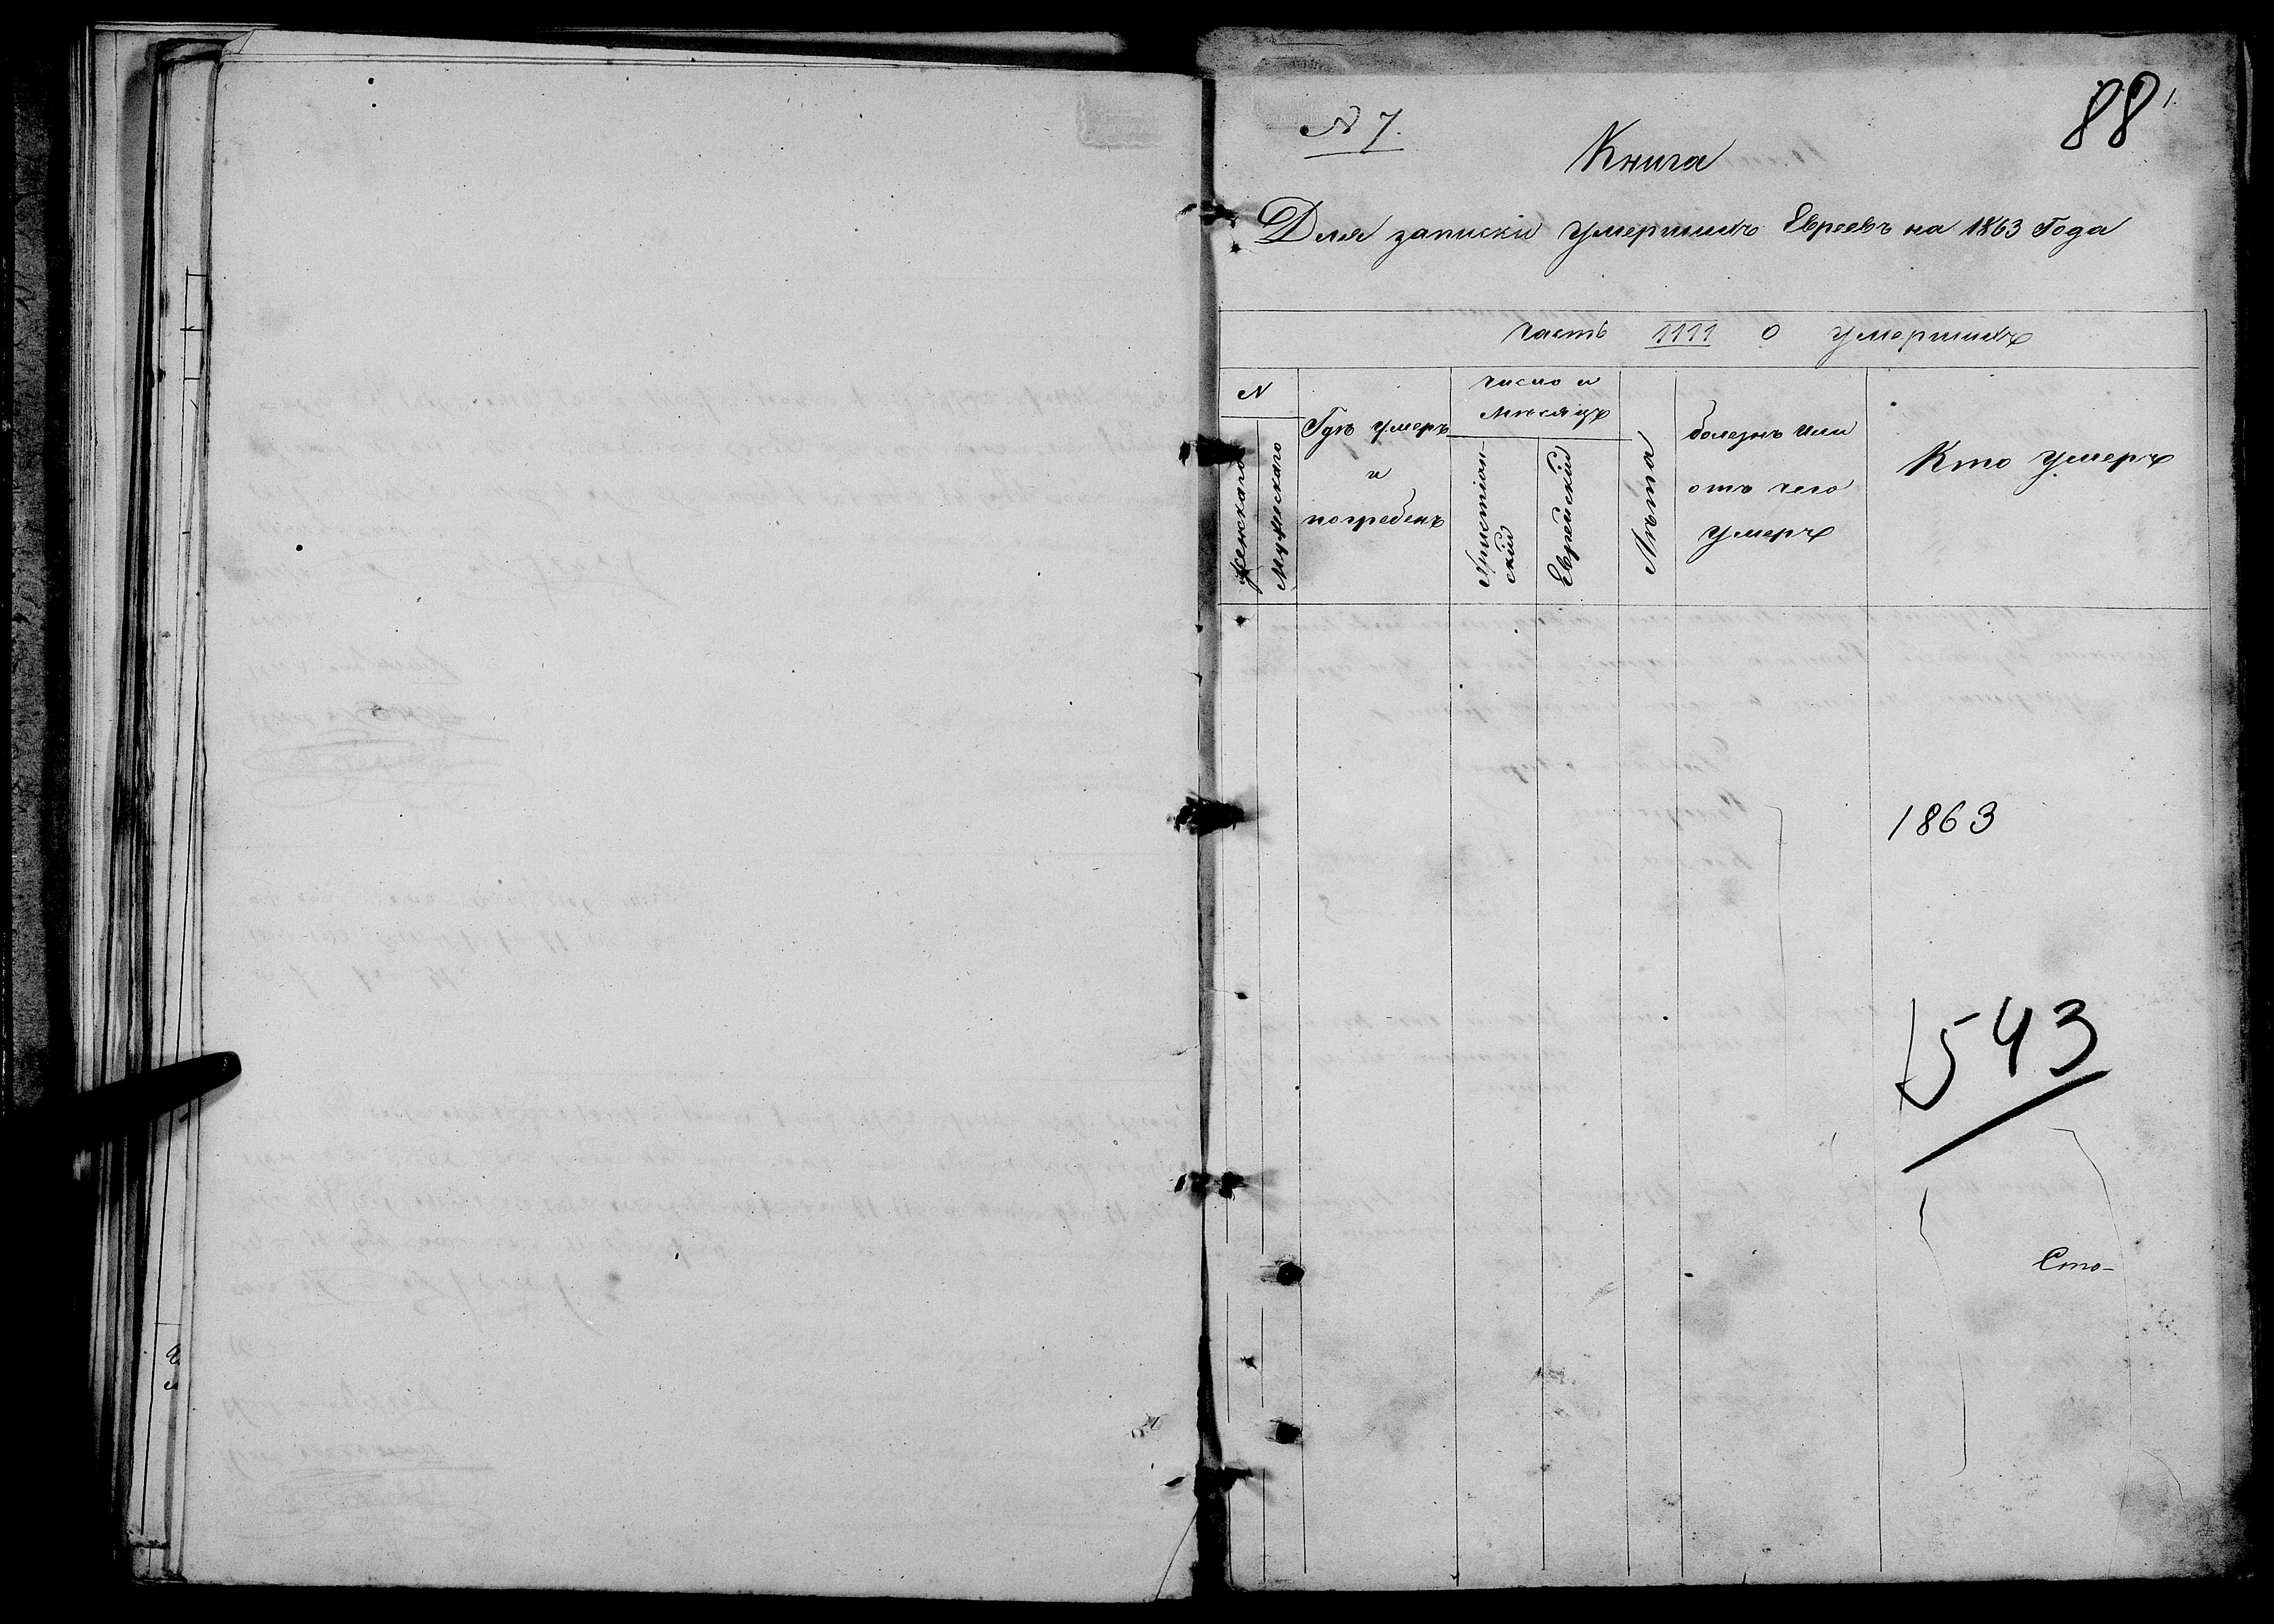 88
1.
N 7.
Книга
Для записки Умершихъ Евреевъ на 1863 Года
Часть IIII о умершихъ
N
Женскаго
Мужескаго
Гдѣ умеръ
и
погребенъ
Число и
мѣсяцъ
Христіан-
скій
Еврейскій
Лѣта
болезнь или
отъ чего
умеръ
Кто умеръ
1863
543
Сто-